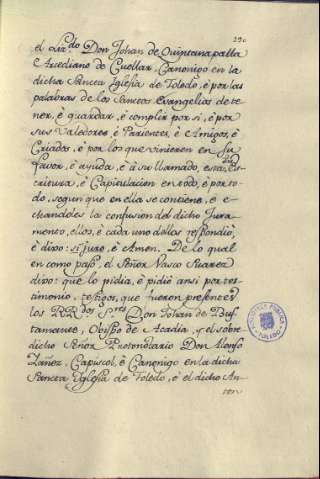 el ora.do Don Johan de Quintanapalla
Arcediano de Cuellar, Canonigo en la
dicha Sancta Iglesia de Toledo, è por las
palabras de los Sanctos Evangelios de te-
ner, è guardar, è complir por si, è por
sus Valedores è Parientes, è Amigos, è
Criados, è por los que vinieren en su
favor, è ayuda, è à su llamado, esta Es-
criptura, è Capitulacion en todo, è por to-
do, segun que en ella se contiene, e
echandoles la confusion del dicho Jura-
mento, ellos, è cada uno dellos respondiò,
è dixo: si juro, è Amen. De lo qual
en como pasò, el Señor Vasco Suarez
dixo: que lo pidia, è pidiò ansi por tes-
timonio, testigos, que fueron presentes
los RR.dos S.res Don Johan de Bus-
tamante, Obispo de Acadia, y el sobre
dicho Señor Protonotario Don Alonso
Yañez, Capiscol, è Canonigo en la dicha
Sancta Iglesia de Toledo, è el dicho An-
ton
TOLEDO